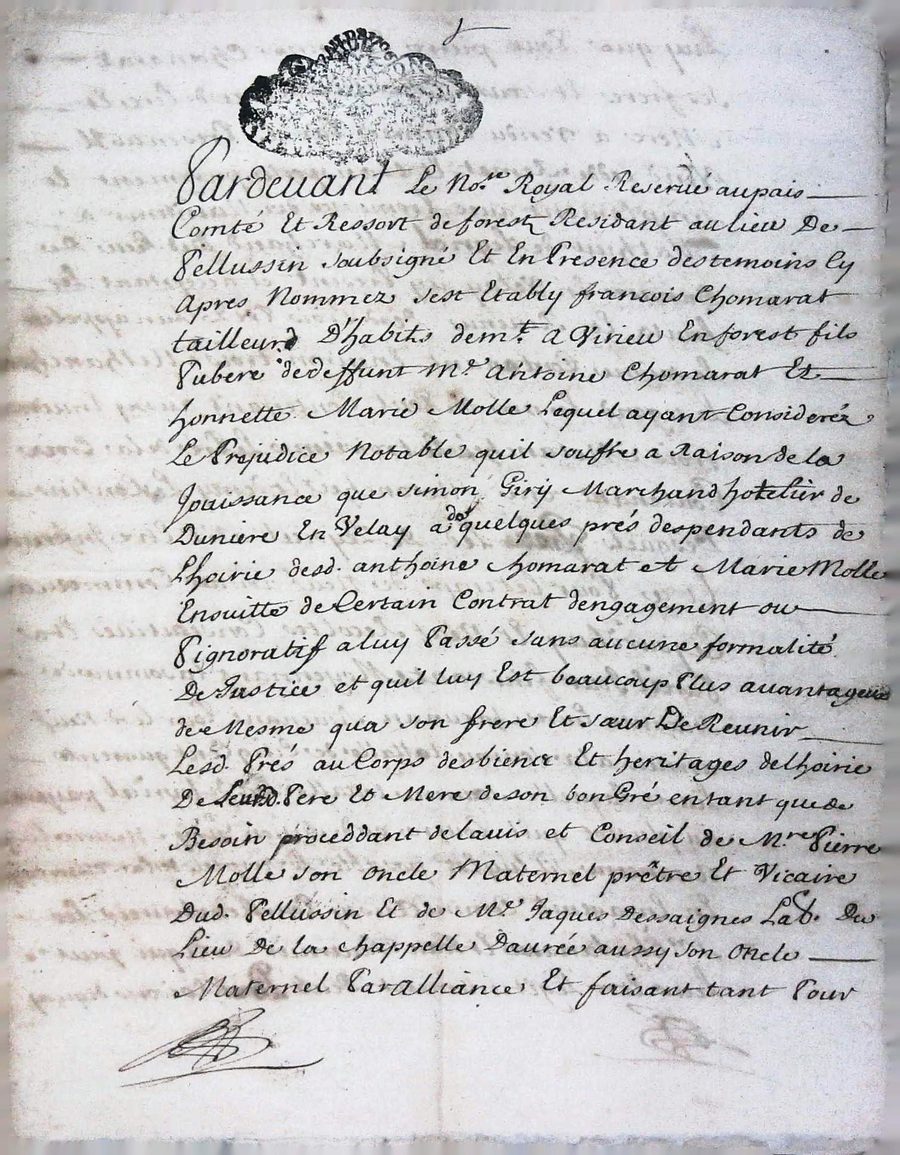 Pardevant Le No.re Royal Reserve aupais
Comté Et Ressort de forestz Residant aulieu De
Pellussin soubsigné Et En Presence destemoins Cy
Apres Nommez sest Etably francois Chomarat
tailleurd D'habits demt. A Virieu En forest fils
Pubere de deffunt Mr. Antoine Chomarat Et
honnette Marie Molle Lequel ayant Consideréz
Le Prejudice Notable quil souffre a Raison de la
Jouissance que simon Girij Marchand hotelier de
Duniere En Velay a quelques prés despendants de
Lhoirie desd. anthoine Chomarat et Marie Molle
Ensuitte de Certain Contrat dengagement ou
Pignoratif a luy Passé sans aucune formalité
De Justice et quil luy Est beaucoup Plus avantageux
de Mesme qua son frere Et sœur De Reunir
Lesd. Prés au Corps desbiens Et heritages delhoirie
De Leurd. Pere Et Mere de son bon Gré entant que de
Besoin proceddant delavis et Conseil de M.re Pierre
Molle son Oncle Maternel prêtre Et Vicaire
Dud. Pellussin Et de Me. Jaques Dessaignes Lab. Du
Lieu De la Chappelle Daurée aussy son Oncle
Maternel Par Alliance Et faisant tant Pour